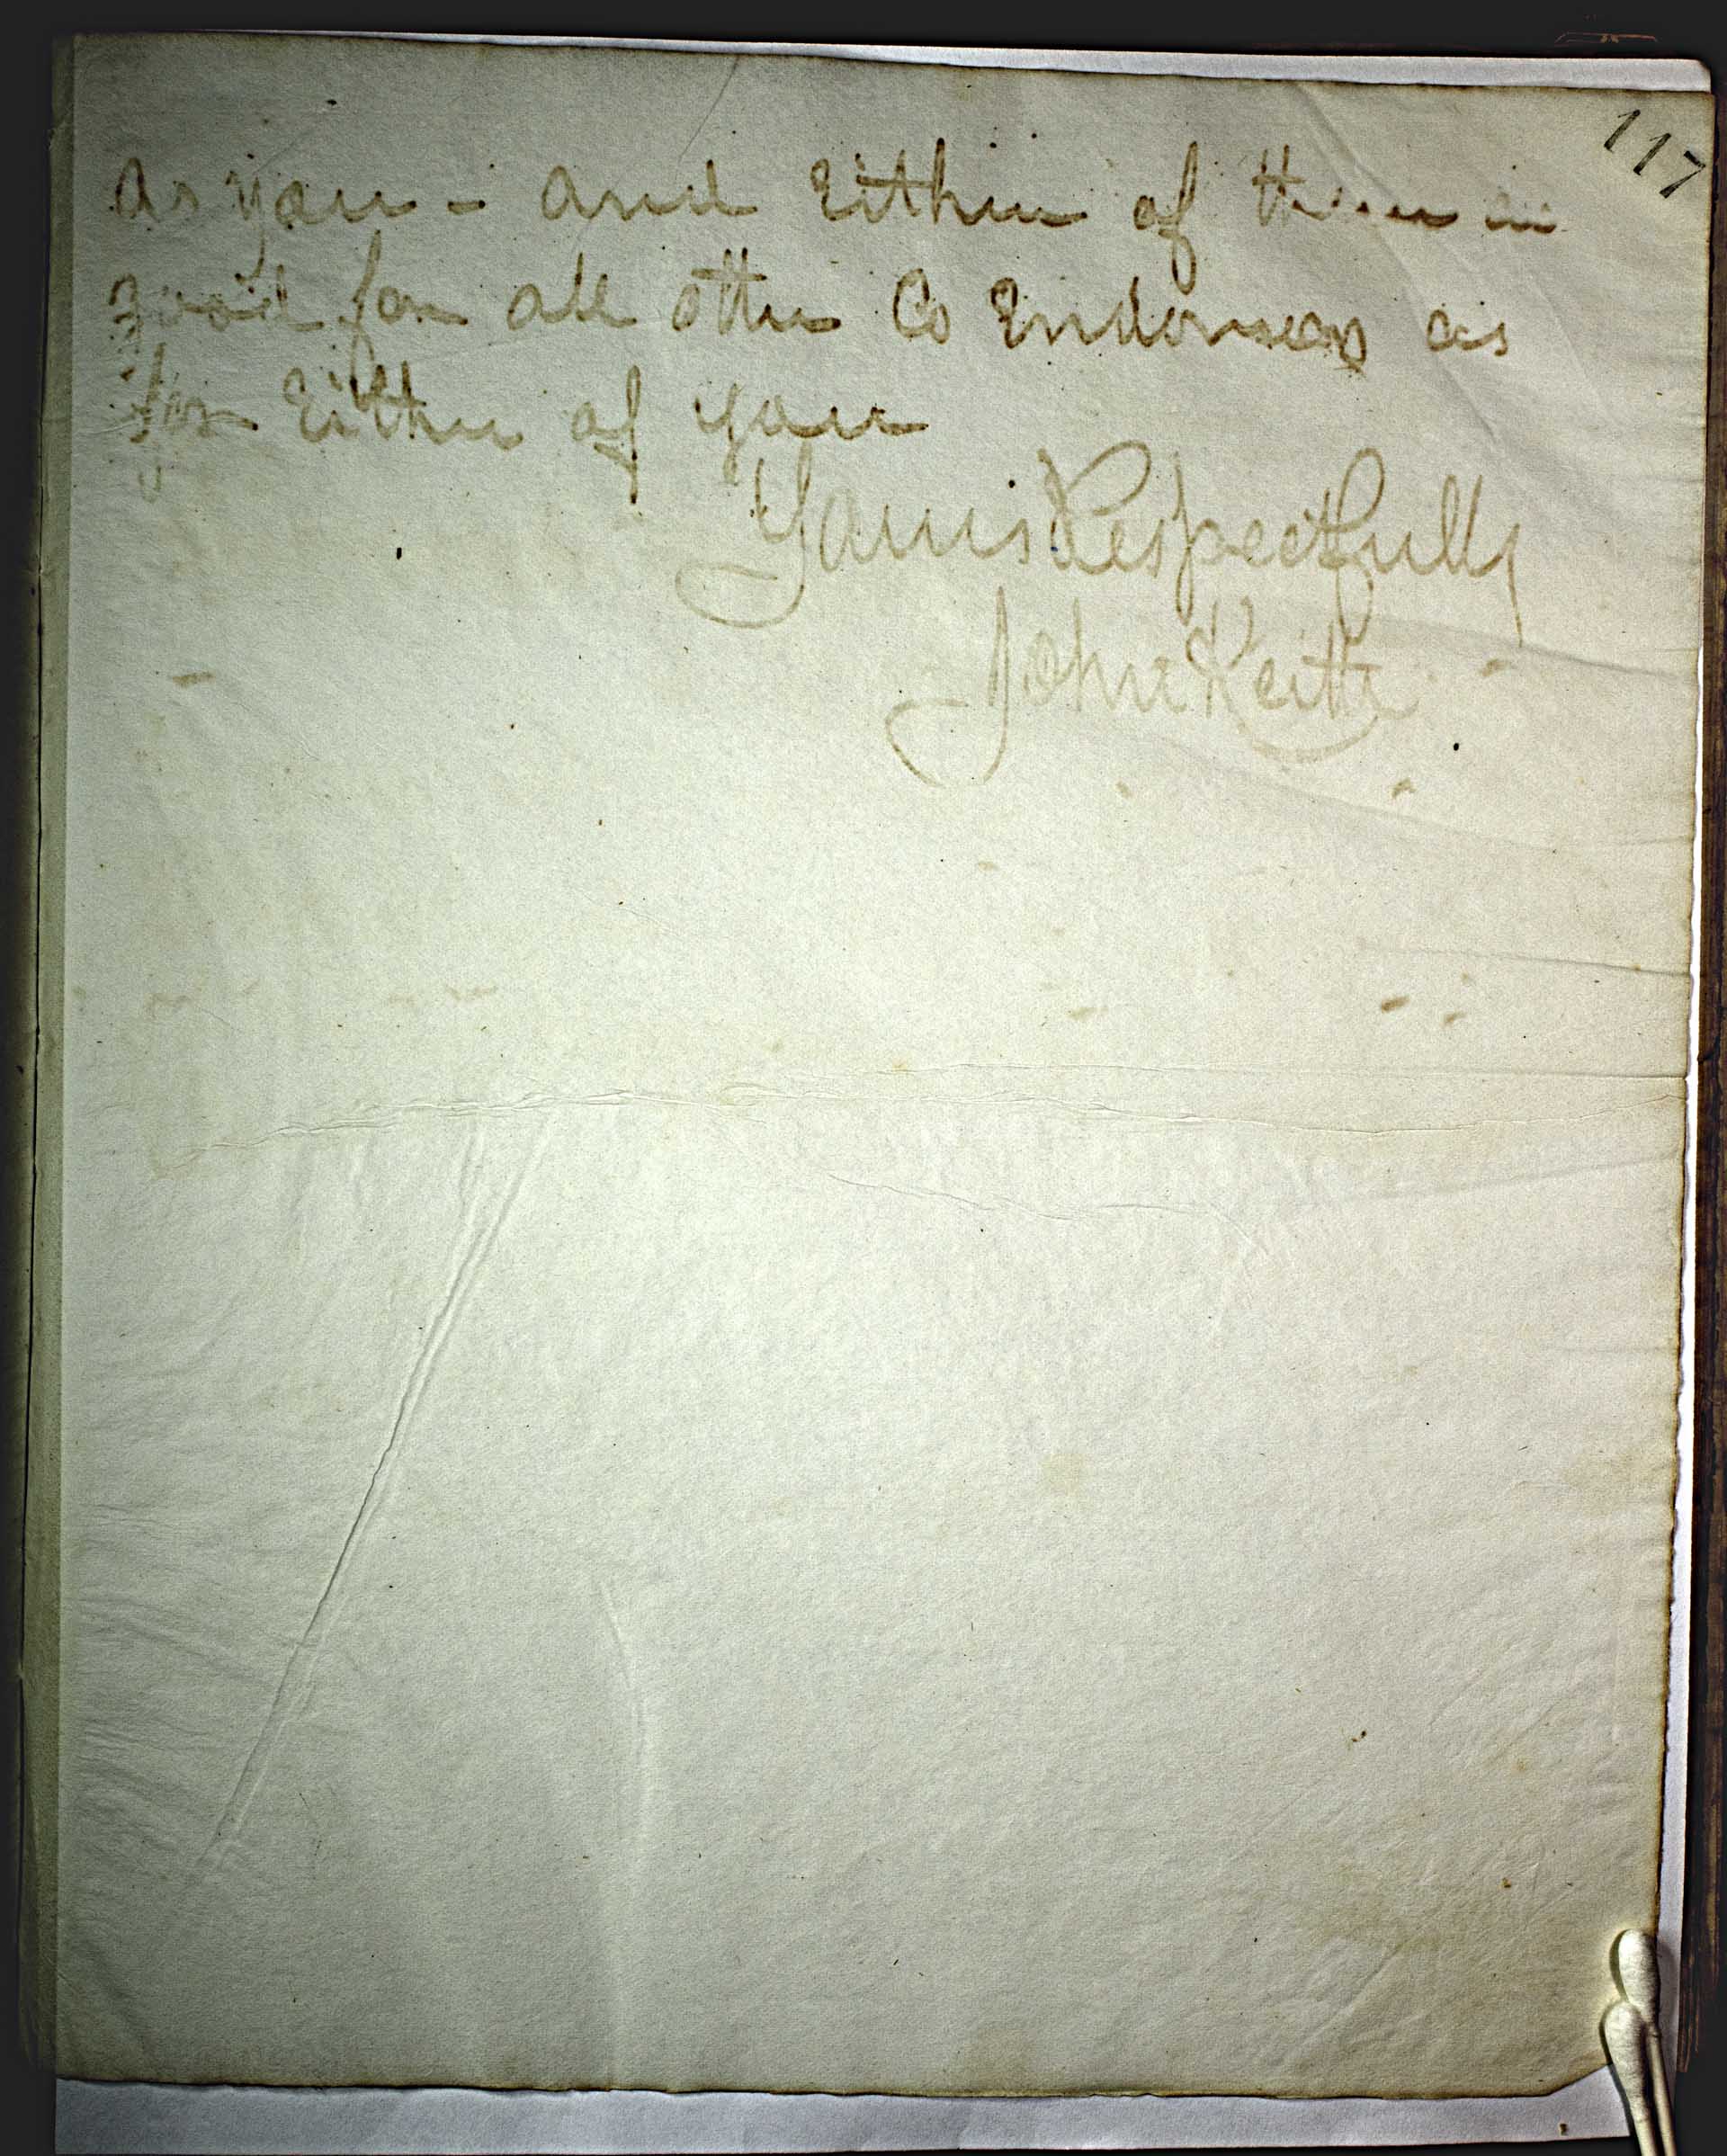 117
as you - and Either of them is
good for all other Co Endorsers as
for Either of you
Yours Respectfully
John Keith